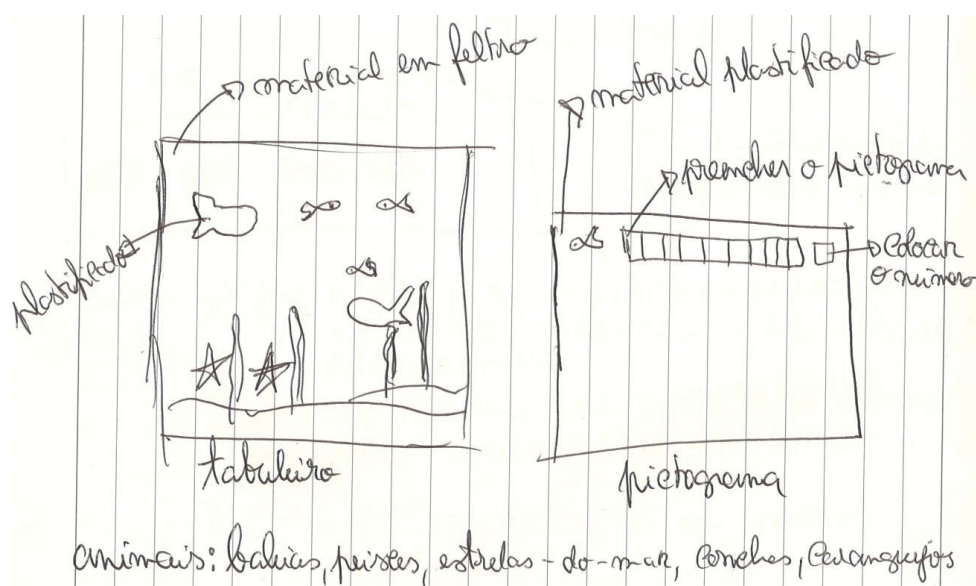 material em feltro
plastificado
tabuleiro
material plastificado
preencher o pictograma
colocar
o número
pictograma
animais: baleias, peixes, estrelas-do-mar, conchas, caranguejos